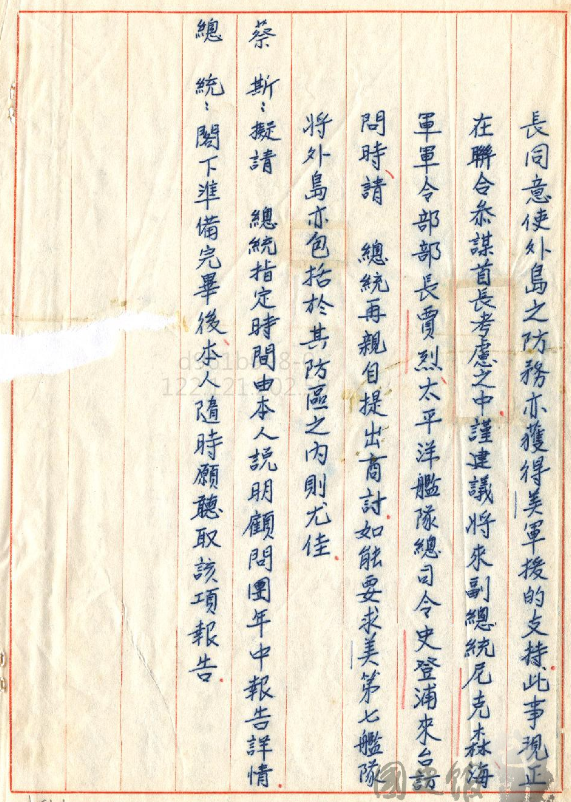 長同意使外島之防務亦獲得美軍援的支持此事現正
在聯合參謀首長考慮之中謹建議將來副總統尼克森海
軍軍令部部長賈烈太平洋艦隊總司令史登浦來台訪
問時請　總統再親自提出商討如能要求美第七艦隊
將外島亦包括於其防區之內則尤佳
蔡斯：擬請　總統指定時間由本人說明顧問團年中報告詳情
總統：閣下準備完畢後本人隨時願聽取該項報告
國史館